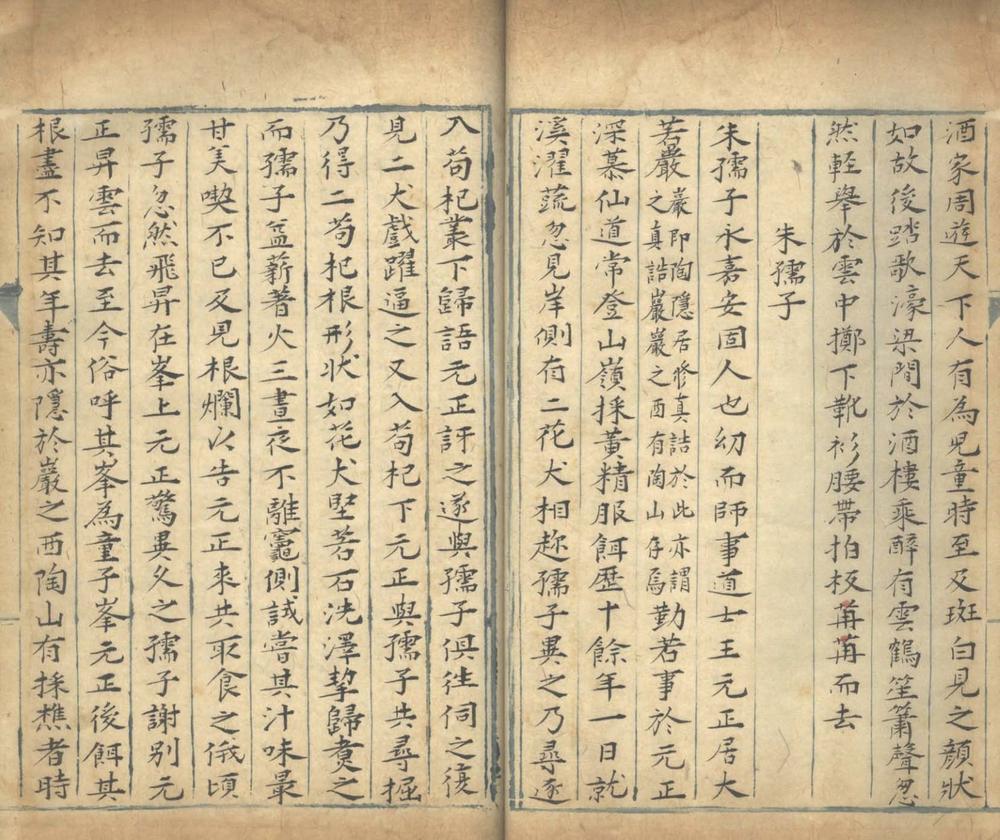 酒家周遊天下人有為兒童時至及斑白見之顏狀
如故後踏歌濠梁間於酒樓乘醉有雲鶴笙簫聲忽
然輕舉於雲中擲下靴衫腰帶拍板苒苒而去
朱孺子
朱孺子永嘉安固人也幼而師事道士王元正居大
若巖巖即陶隱居修真誥於此亦謂之真誥巖巖之西有陶山存焉勤若事於元正
深慕仙道常登山嶺採黃精服餌歷十餘年一日就
溪濯蔬忽見岸側有二花犬相趂孺子異之乃尋逐
入苟杞叢下歸語元正訝之遂與孺子俱往伺之復
見二犬戲躍逼之又入苟杞下元正與孺子共尋掘
乃得二苟杞根形状如花犬堅若石洗澤挈歸煑之
而孺子益薪著火三晝夜不離竈側試嘗其汁味最
甘美喫不已及見根爛以告元正來共取食之俄頃
孺子忽然飛昇在峯上元正驚異久之孺子謝別元
正昇雲而去至今俗呼其峯為童子峯元正後餌其
根盡不知其年壽亦隱於巖之西陶山有採樵者時